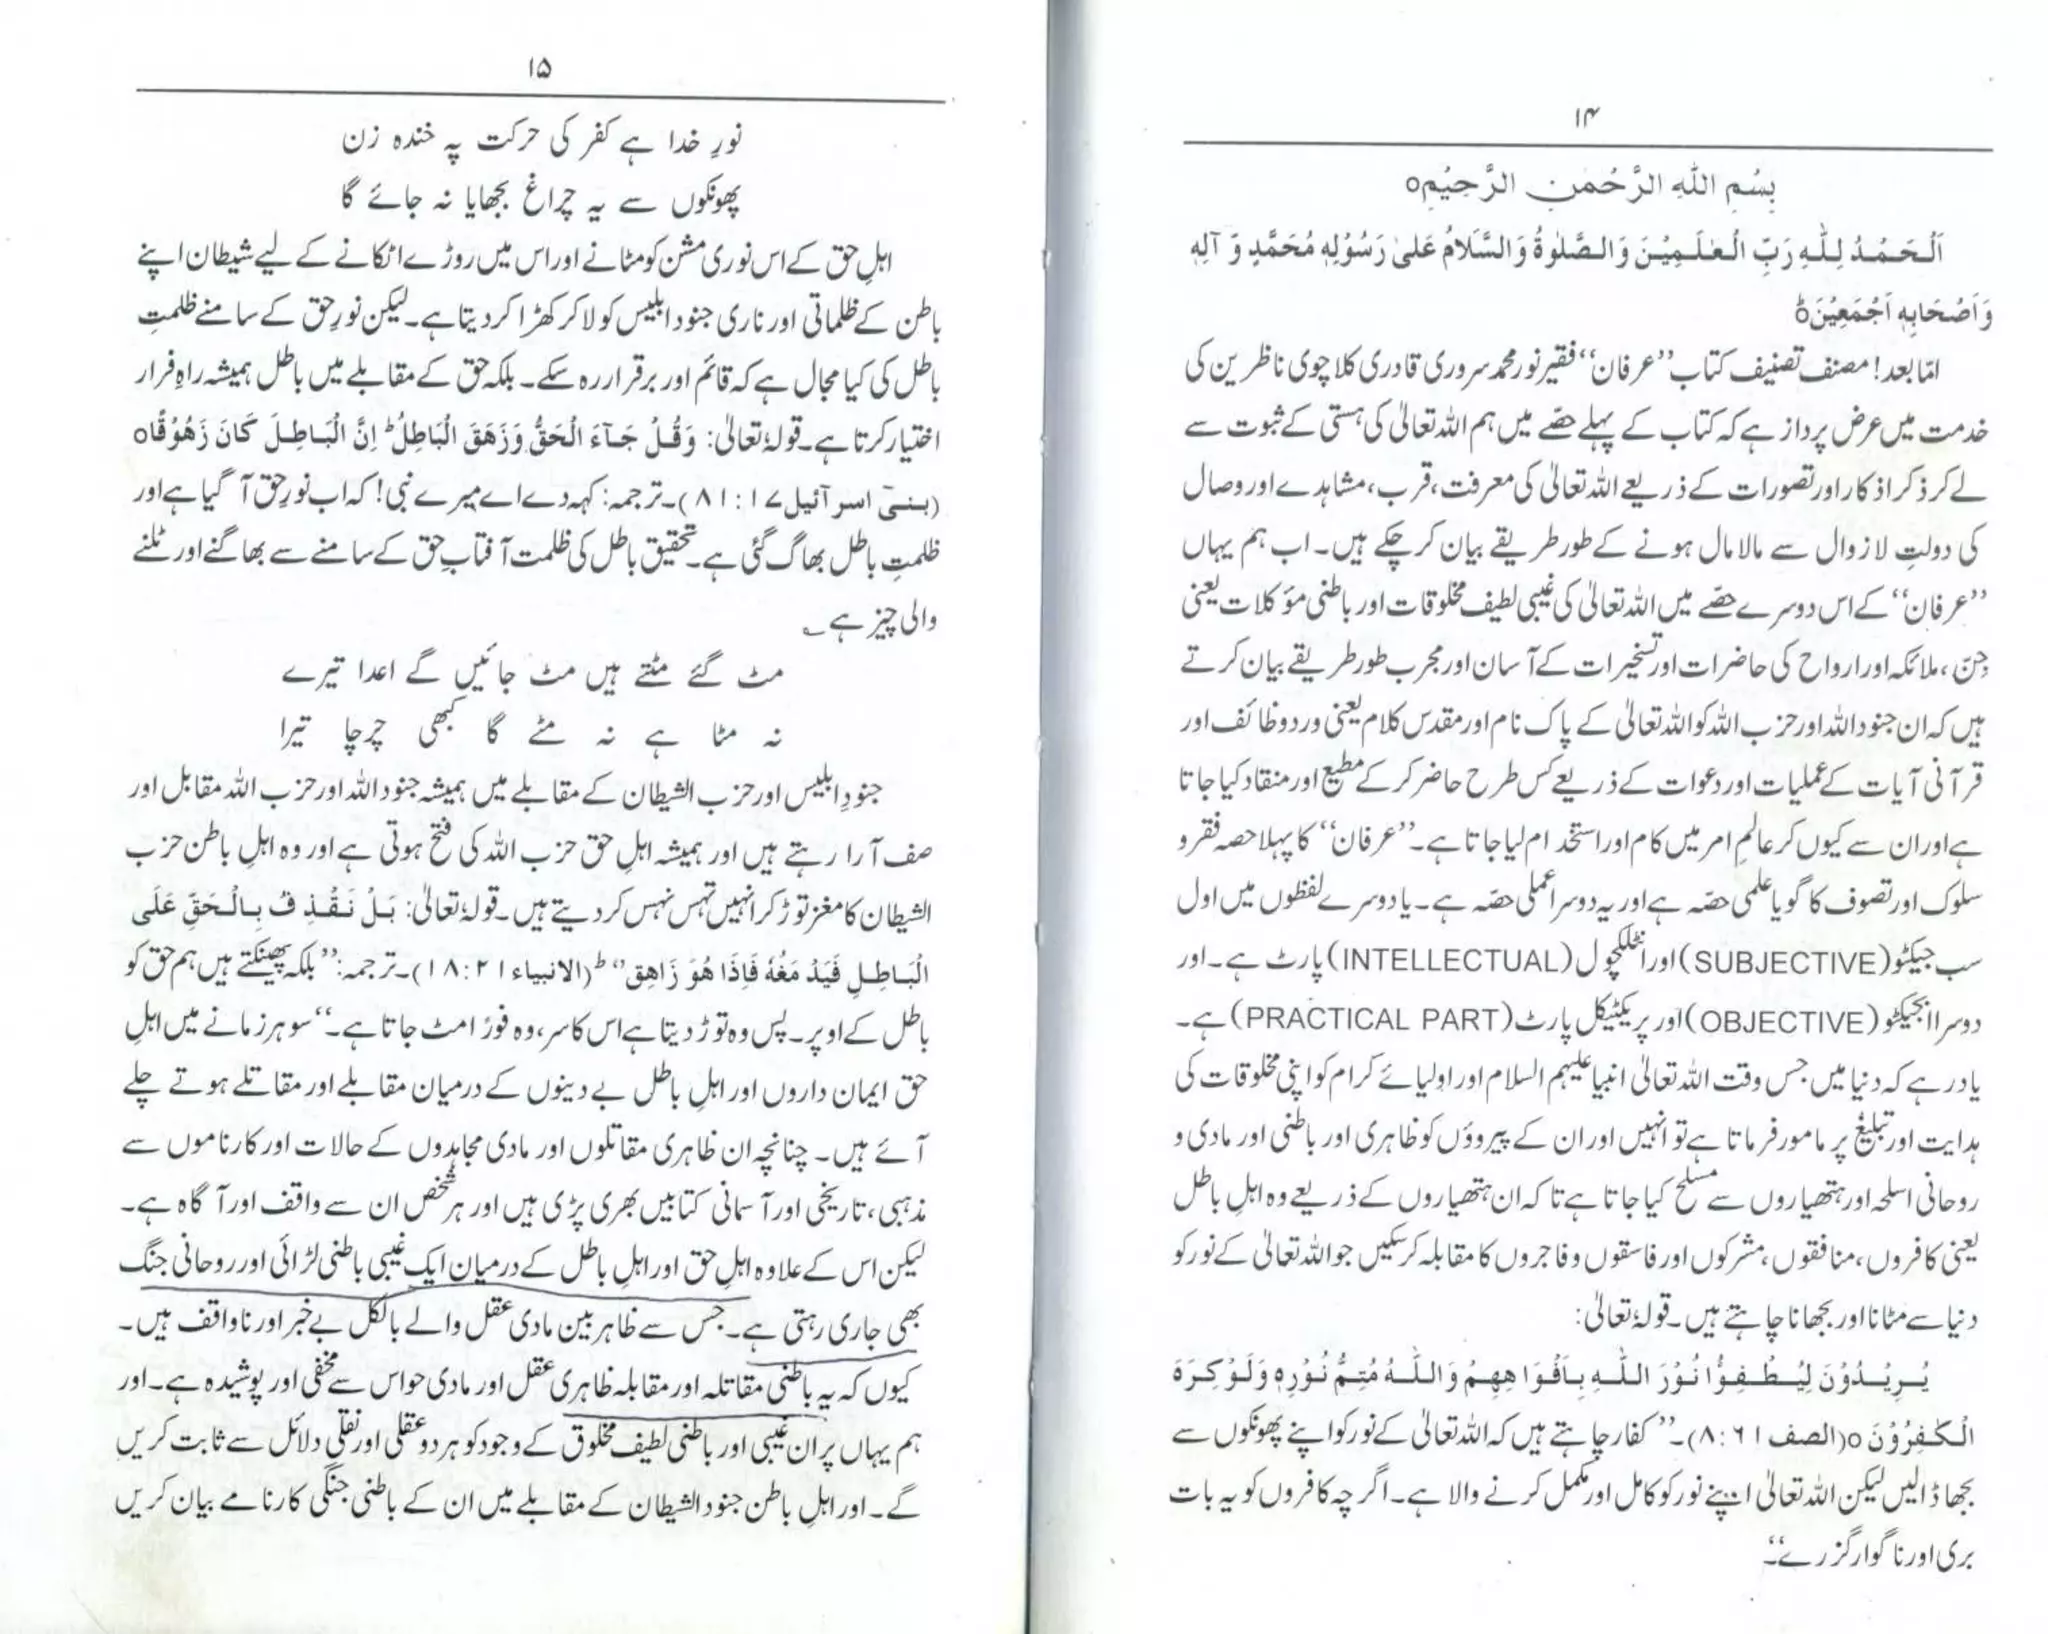 ۱۴
بِسْمِ اللہِ الرَّحْمٰنِ الرَّحِیْمِ٥
اَلْحَمْدُ لِلّٰہِ رَبِّ الْعٰلَمِیْنَ وَالصَّلٰوۃُ وَالسَّلَامُ عَلٰی رَسُوْلِہٖ مُحَمَّدٍ وَّ آلِہٖ
وَاَصْحَابِہٖ اَجْمَعِیْنَ٥ؕ
امّا بعد! مصنف تصنیف کتاب ’’عرفان‘‘ فقیر نور محمد سروری قادری کلاچوی ناظرین کی
خدمت میں عرض پرداز ہے کہ کتاب کے پہلے حصّے میں ہم اللہ تعالیٰ کی ہستی کے ثبوت سے
لے کر ذکر اذکار اور تصورات کے ذریعے اللہ تعالیٰ کی معرفت، قرب، مشاہدے اور وصال
کی دولتِ لازوال سے مالا مال ہونے کے طور طریقے بیان کر چکے ہیں۔ اب ہم یہاں
’’عرفان‘‘ کے اس دوسرے حصّے میں اللہ تعالیٰ کی غیبی لطیف مخلوقات اور باطنی مؤکلات یعنی
جِنّ، ملائکہ اور ارواح کی حاضرات اور تسخیرات کے آسان اور مجرب طور طریقے بیان کرتے
ہیں کہ ان جنود اللہ اور حزب اللہ کو اللہ تعالیٰ کے پاک نام اور مقدس کلام یعنی ورد و وظائف اور
قرآنی آیات کے عملیات اور دعوات کے ذریعے کس طرح حاضر کر کے مطیع اور منقاد کیا جاتا
ہے اور ان سے کیوں کر عالمِ امر میں کام اور استخدام لیا جاتا ہے۔ ’’عرفان‘‘ کا پہلا حصہ فقر و
سلوک اور تصوف کا گویا علمی حصّہ ہے اور یہ دوسرا عملی حصّہ ہے۔ یا دوسرے لفظوں میں اول
سب جیکٹو (SUBJECTIVE) اور انٹلکچول (INTELLECTUAL) پارٹ ہے۔ اور
دوسرا ابجیکٹو (OBJECTIVE) اور پریکٹیکل پارٹ (PRACTICAL PART) ہے۔
یاد رہے کہ دنیا میں جس وقت اللہ تعالیٰ انبیا علیہم السلام اور اولیائے کرام کو اپنی مخلوقات کی
ہدایت اور تبلیغ پر مامور فرماتا ہے تو انہیں اور ان کے پیروؤں کو ظاہری اور باطنی اور مادی و
روحانی اسلحہ اور ہتھیاروں سے مسلح کیا جاتا ہے تاکہ ان ہتھیاروں کے ذریعے وہ اہلِ باطل
یعنی کافروں، منافقوں، مشرکوں اور فاسقوں و فاجروں کا مقابلہ کر سکیں جو اللہ تعالیٰ کے نور کو
دنیا سے مٹانا اور بجھانا چاہتے ہیں۔ قولہٗ تعالیٰ:
یُرِیْدُوْنَ لِیُطْفِؤُا نُوْرَ اللّٰہِ بِاَفْوَاھِھِمْ وَاللّٰہُ مُتِمُّ نُوْرِہٖ وَلَوْ کَرِہَ
الْکٰفِرُوْنَ٥ (الصف ۶۱:۸)۔ ’’کفار چاہتے ہیں کہ اللہ تعالیٰ کے نور کو اپنے پھونکوں سے
بجھا ڈالیں لیکن اللہ تعالیٰ اپنے نور کو کامل اور مکمل کرنے والا ہے۔ اگرچہ کافروں کو یہ بات
بری اور ناگوار گزرے‘‘۔
۱۵
نورِ خدا ہے کفر کی حرکت پہ خندہ زن
پھونکوں سے یہ چراغ بجھایا نہ جائے گا
اہلِ حق کے اس نوری مشن کو مٹانے اور اس میں روڑے اٹکانے کے لیے شیطان اپنے
باطن کے ظلماتی اور ناری جنود ابلیس کو لا کر کھڑا کر دیتا ہے۔ لیکن نورِ حق کے سامنے ظلمتِ
باطل کی کیا مجال ہے کہ قائم اور برقرار رہ سکے۔ بلکہ حق کے مقابلے میں باطل ہمیشہ راہِ فرار
اختیار کرتا ہے۔ قولہٗ تعالیٰ: وَقُلْ جَآءَ الْحَقُّ وَزَھَقَ الْبَاطِلُ ؕ اِنَّ الْبَاطِلَ کَانَ زَھُوْقًا٥
(بنیٓ اسرآئیل ۱۷:۸۱)۔ ترجمہ: کہہ دے اے میرے نبی! کہ اب نورِ حق آ گیا ہے اور
ظلمتِ باطل بھاگ گئی ہے۔ تحقیق باطل کی ظلمت آفتابِ حق کے سامنے سے بھاگنے اور ٹلنے
والی چیز ہے ؎
مٹ گئے مٹتے ہیں مٹ جائیں گے اعدا تیرے
نہ مٹا ہے نہ مٹے گا کبھی چرچا تیرا
جنودِ ابلیس اور حزب الشیطان کے مقابلے میں ہمیشہ جنود اللہ اور حزب اللہ مقابل اور
صف آرا رہتے ہیں اور ہمیشہ اہلِ حق حزب اللہ کی فتح ہوتی ہے اور وہ اہلِ باطن حزب
الشیطان کا مغز توڑ کر انہیں تہس نہس کر دیتے ہیں۔ قولہٗ تعالیٰ: بَلْ نَقْذِفُ بِالْحَقِّ عَلَی
الْبَاطِلِ فَیَدْمَغُہٗ فَاِذَا ھُوَ زَاھِقٌ ؕ (الانبیاء ۲۱:۱۸)۔ ترجمہ: ’’بلکہ پھینکتے ہیں ہم حق کو
باطل کے اوپر۔ پس وہ توڑ دیتا ہے اس کا سر، وہ فورًا مٹ جاتا ہے۔‘‘ سو ہر زمانے میں اہلِ
حق ایمان داروں اور اہلِ باطل بے دینوں کے درمیان مقابلے اور مقاتلے ہوتے چلے
آئے ہیں۔ چنانچہ ان ظاہری مقاتلوں اور مادی مجاہدوں کے حالات اور کارناموں سے
مذہبی، تاریخی اور آسمانی کتابیں بھری پڑی ہیں اور ہر شخص ان سے واقف اور آگاہ ہے۔
لیکن اس کے علاوہ اہلِ حق اور اہلِ باطل کے درمیان ایک غیبی باطنی لڑائی اور روحانی جنگ
بھی جاری رہتی ہے۔ جس سے ظاہر بین مادی عقل والے بالکل بے خبر اور ناواقف ہیں۔
کیوں کہ یہ باطنی مقاتلہ اور مقابلہ ظاہری عقل اور مادی حواس سے مخفی اور پوشیدہ ہے۔ اور
ہم یہاں پر ان غیبی اور باطنی لطیف مخلوق کے وجود کو ہر دو عقلی اور نقلی دلائل سے ثابت کریں
گے۔ اور اہلِ باطن جنود الشیطان کے مقابلے میں ان کے باطنی جنگی کارنامے بیان کریں